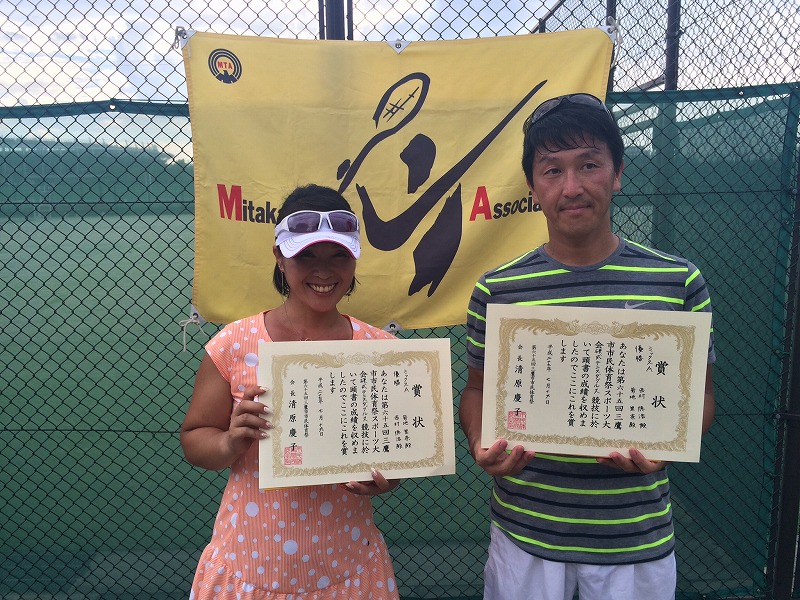 MTA
Mitaka
Associa
賞状
ミックスA
優勝
あなたは第六十五回三鷹
市市民体育祭スポーツ大
会硬式テニスダブルス競技に於
いて頭書の成績を収めま
したのでここにこれを賞
します
会長 清原慶子
賞状
ミックスA
優勝
あなたは第六十五回三鷹
市市民体育祭スポーツ大
会硬式テニスダブルス競技に於
いて頭書の成績を収めま
したのでここにこれを賞
します
会長 清原慶子